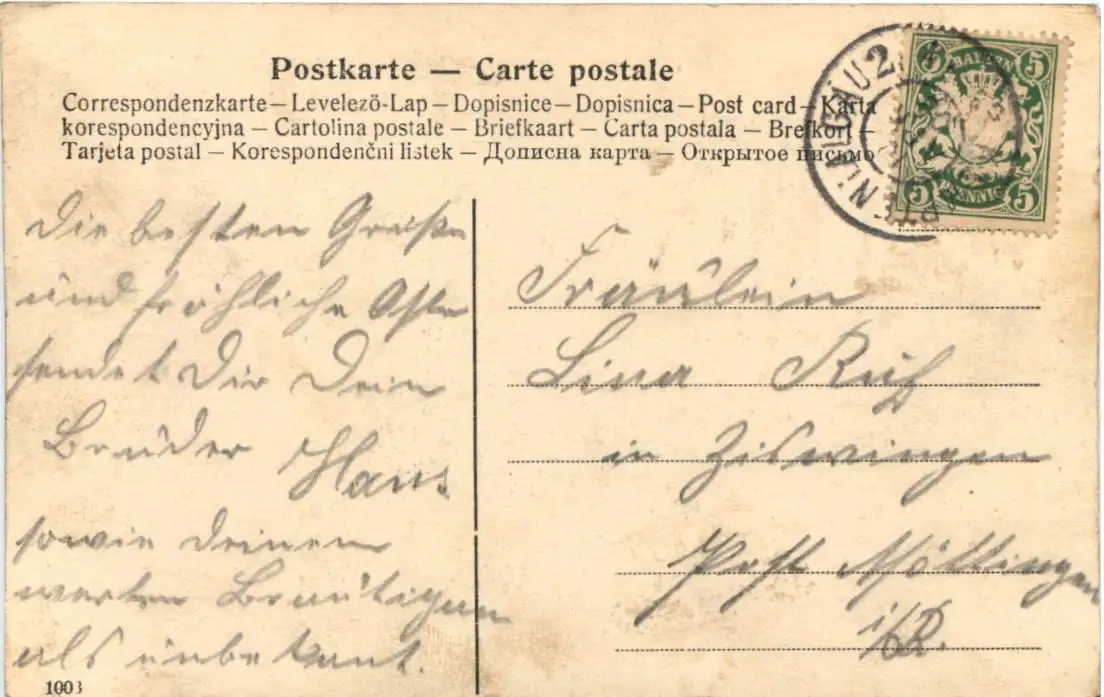 Postkarte — Carte postale
Correspondenzkarte – Levelező-Lap – Dopisnice – Dopisnica – Post card – Karta
korespondencyjna – Cartolina postale – Briefkaart – Carta postala – Brefkort –
Tarjeta postal – Korespondenčni listek – Дописна карта – Открытое письмо
BAYERN
5 5
5 PFENNIG 5
PTEN ALGÄU 2
Die besten Grüße
und fröhliche Oste
sendet Dir Dein
Bruder Hans
sowie deinem
werten Bräutigam
als unbekant.
Fräulein
Lina Ruf
in Ziswingen
Post Möttingen
i/R.
1003